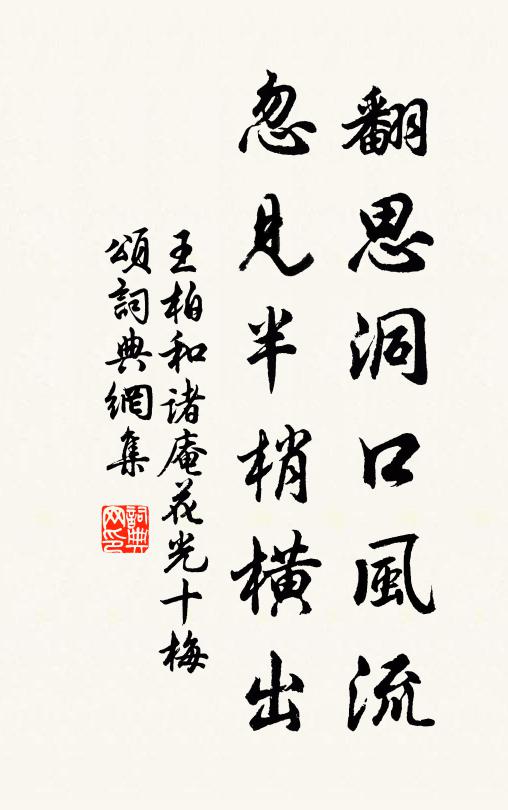 翻思洞口風流
忽見半梢橫出
王柏和諸庵花光十梅
頌詞典網集
詞典
网印